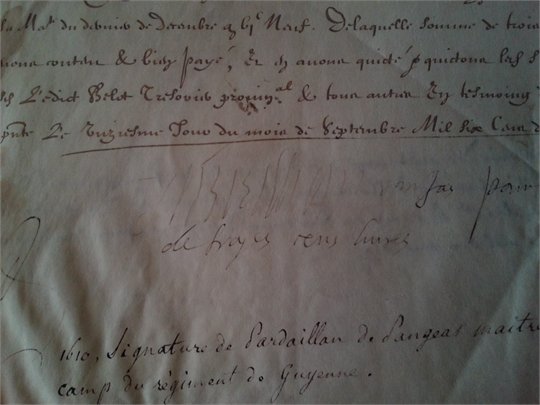 sa Ma.te du dernier de Decembre g bjc Neuf. Delaquelle somme de trois
nous conten & bien payé, Et en avons quicté & quictons led s
Belot Tresorier provin.al & tous autres En tesmoing
pnte Le unziesme Jour du mois de Septembre Mil Six Cens d
pour
de troys cens livres
1610, Signature de Pardaillan de Pangeas maitre
camp du régiment de Guyenne.